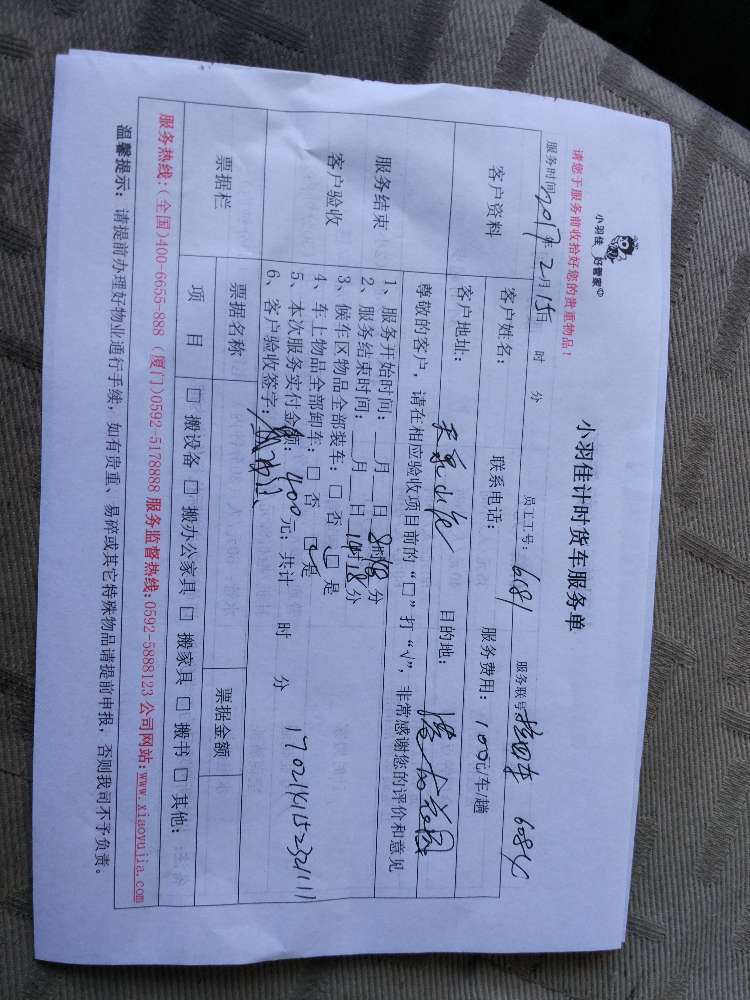 小羽佳 好管家
小羽佳计时货车服务单
请您于服务前收拾好您的贵重物品！
员工工号：6181 服务联号 6084
服务时间2017年2月15日 时 分
客户资料 客户姓名： 联系电话： 服务费用：100元/车/趟
客户地址： 目的地：
尊敬的客户，请在相应验收项目前的“口”打“√”，非常感谢您的评价和意见
服务结束
客户验收
1、服务开始时间：__月__日 8时18分
2、服务结束时间：__月__日 14时18分
3、候车区物品全部装车：□ 否 □ 是
4、车上物品全部卸车：□ 否 □ 是
5、本次服务实付金额：400元；共计 时 分
6、客户验收签字：
17021415232111
票据栏 票据名称 票据金额
项 目 □ 搬设备 □ 搬办公家具 □ 搬家具 □ 搬书 □ 其他：
服务热线：(全国)400-6655-888 (厦门)0592-5178888 服务监督热线：0592-5888123 公司网站：www.xiaoyujia.com
温馨提示：请提前办理好物业通行手续，如有贵重、易碎或其它特殊物品请提前申报，否则我司不予负责。